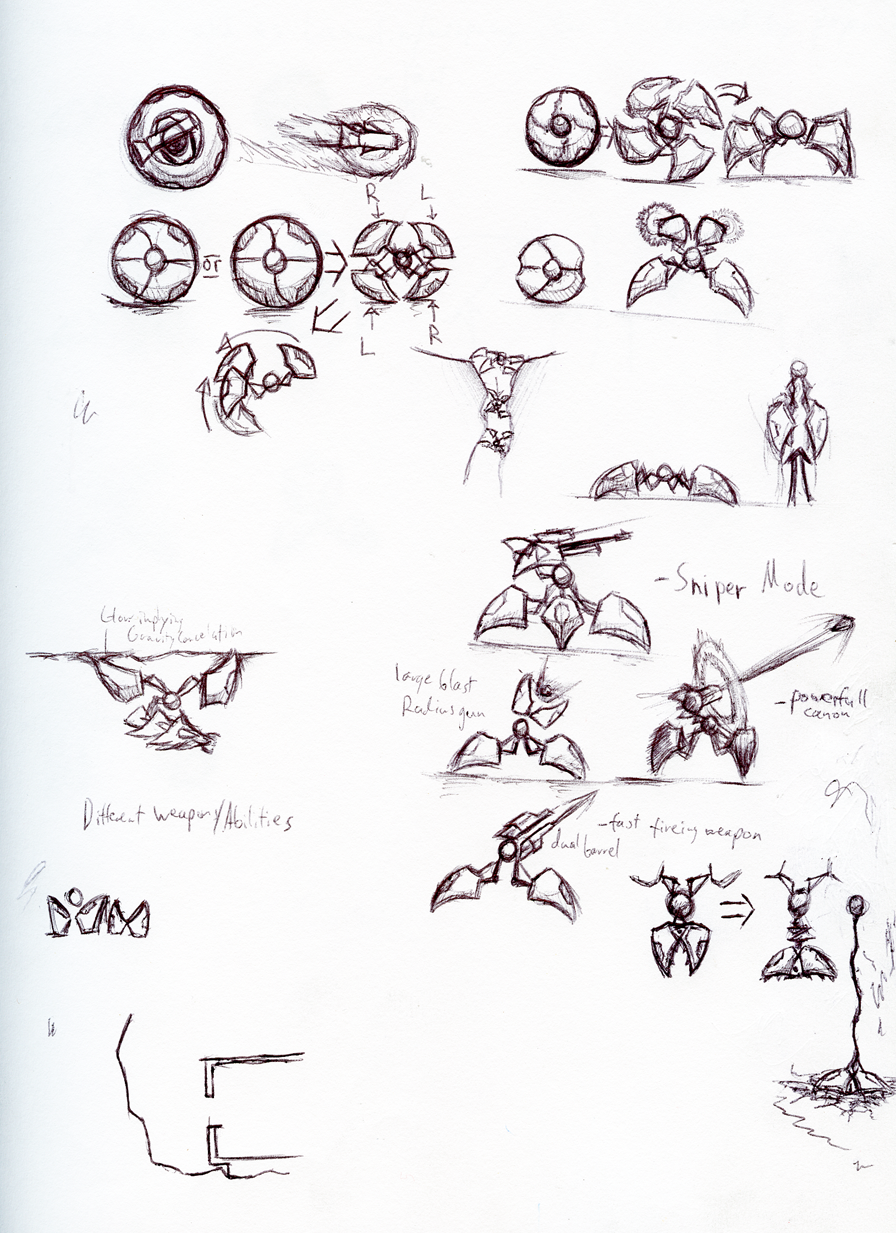 R L
or
L R
- Sniper Mode
Glow implying
Gravity Cancelation
large blast
Radius gun
- powerfull
canon
Different weapons/Abilities
- fast fireing weapon
dual barrel